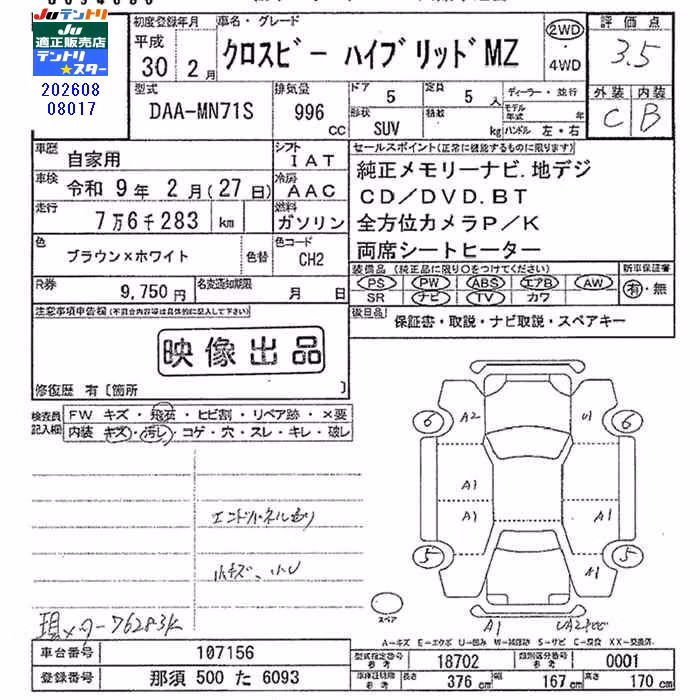 Juテントリ
Ju
適正販売店
テントリ
★スター
202608
08017
初度登録年月
平成
30 2月
車名・グレード
クロスビー ハイブリッドMZ
2WD
・4WD
評価点
3.5
外装 内装
C B
型式
DAA-MN71S
排気量
996
cc
ドア
5
定員
5 人
形状
SUV
積載
kg
ディーラー・並行
モデル年式 年
ハンドル 左・右
車歴
自家用
シフト
IAT
車検
令和 9年 2月(27日)
冷房
AAC
走行
7万6千283 km
燃料
ガソリン
色
ブラウン×ホワイト
色替
色コード
CH2
R券
9,750円
名変通知期限
月 日
セールスポイント(正常に機能するものに限ります)
純正メモリーナビ.地デジ
CD/DVD.BT
全方位カメラP/K
両席シートヒーター
装備品 (純正品に限り○をつけてください)
PS PW ABS エアB AW
SR ナビ TV カワ
新車保証書
有・無
後日品
保証書・取説・ナビ取説・スペアキー
注意事項申告欄(不具合内容等は具体的に記入して下さい)
映像出品
修復歴 有〔箇所 〕
検査員
記入欄
FW キズ・飛石・ヒビ割・リペア跡・×要
内装 キズ・汚レ・コゲ・穴・スレ・キレ・破レ
小キズ、小U
現メーター76283K
6 A2 U1 6
A1
A1 A1
5 A1 5
スペア
A1
A-キズ E-エクボ U-凹み W-補修跡 S-サビ C-腐食 XX-交換済
車台番号
107156
登録番号
那須 500 た 6093
型式指定番号
参考
18702
類別区分番号
参考
0001
車体証明書
参考
長さ 376 cm 幅 167 cm 高さ 170 cm